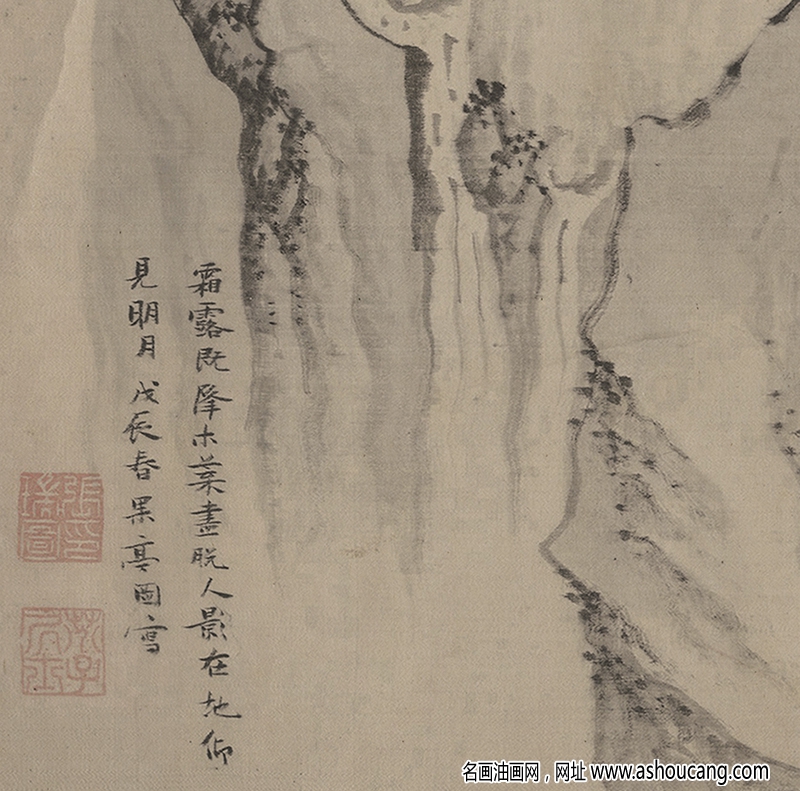 霜露既降木葉盡脫人影在地仰
見明月 戊辰春果亭圖寫
張瑞圖印
名画油画网，网址 www.ashoucang.com